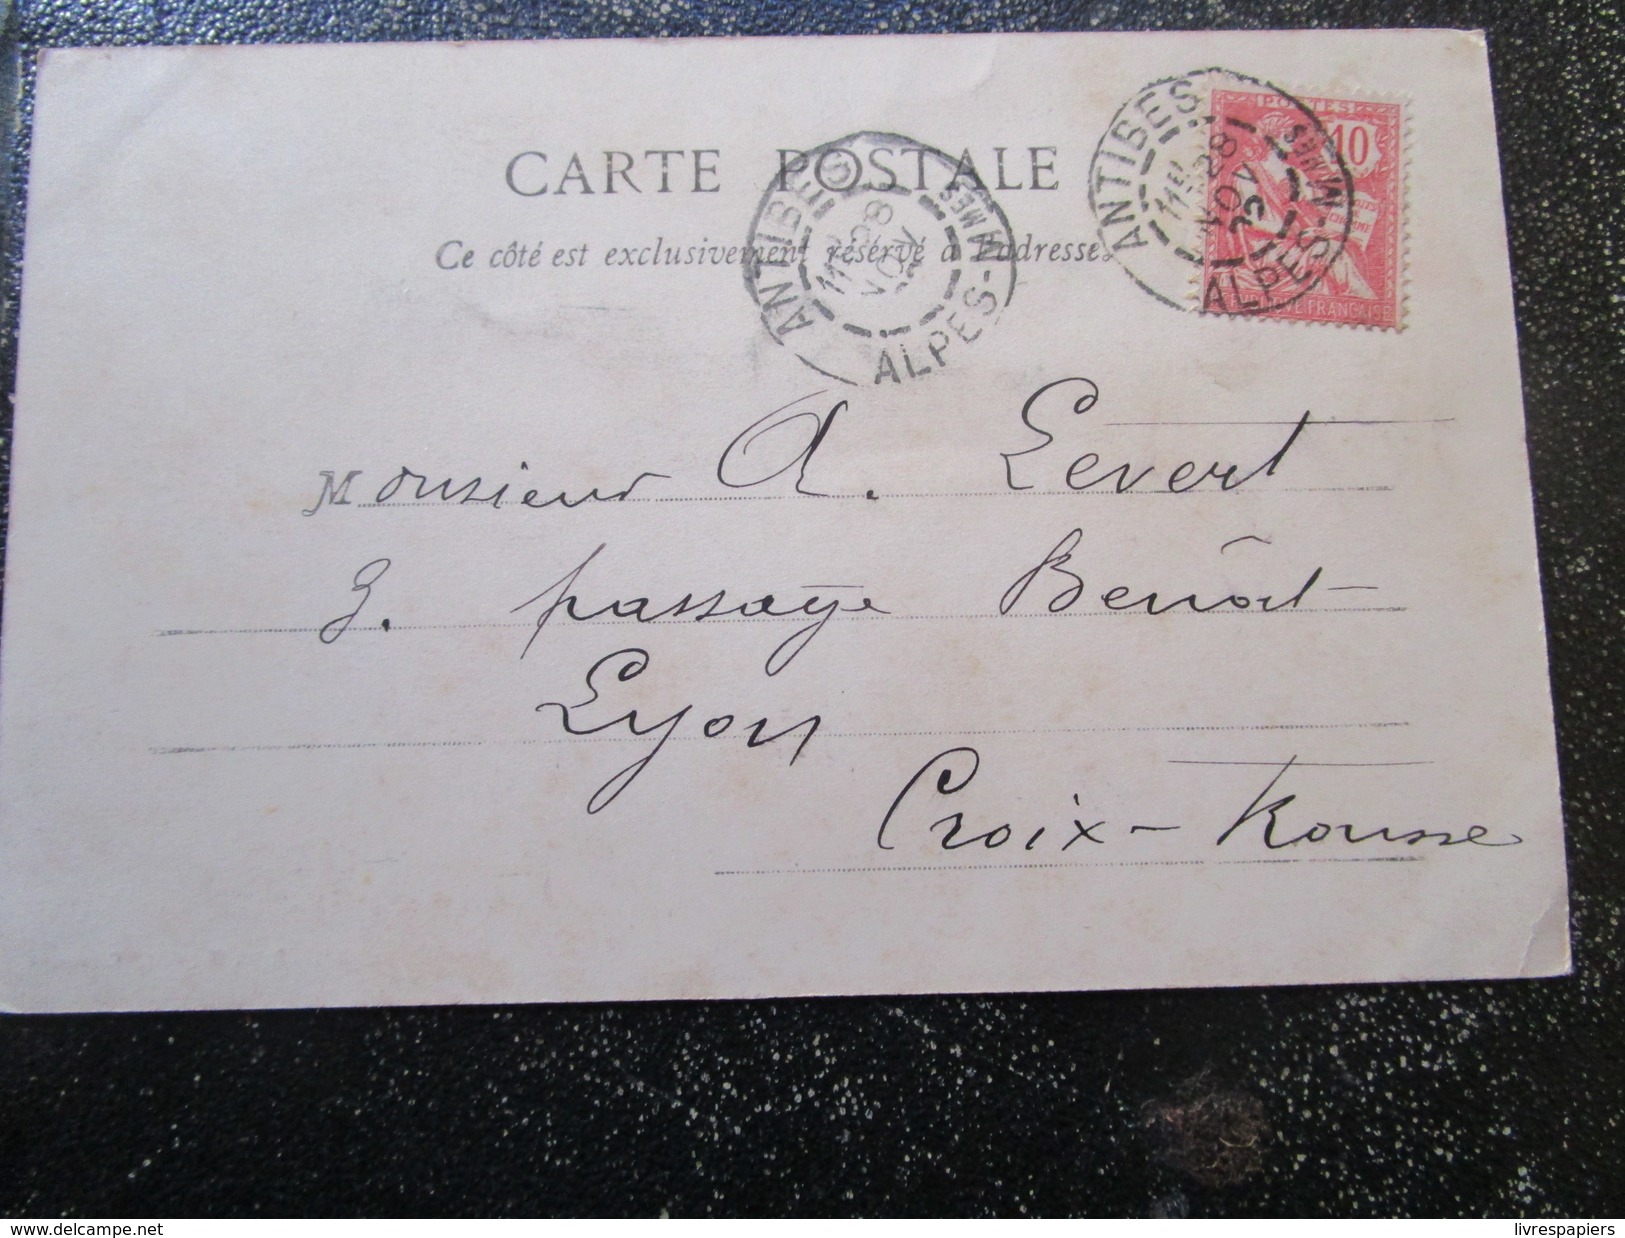 CARTE POSTALE
Ce côté est exclusivement réservé à l'adresse.
ANTIBES
11E 28
NOV
ALPES-MMES
ANTIBES
11E 28
NOV
02
ALPES-MARITIMES
POSTES
10
RÉPUBLIQUE FRANÇAISE
Monsieur A. Levert
3. passage Benoit
Lyon
Croix-Rousse
www.delcampe.net
livrespapiers